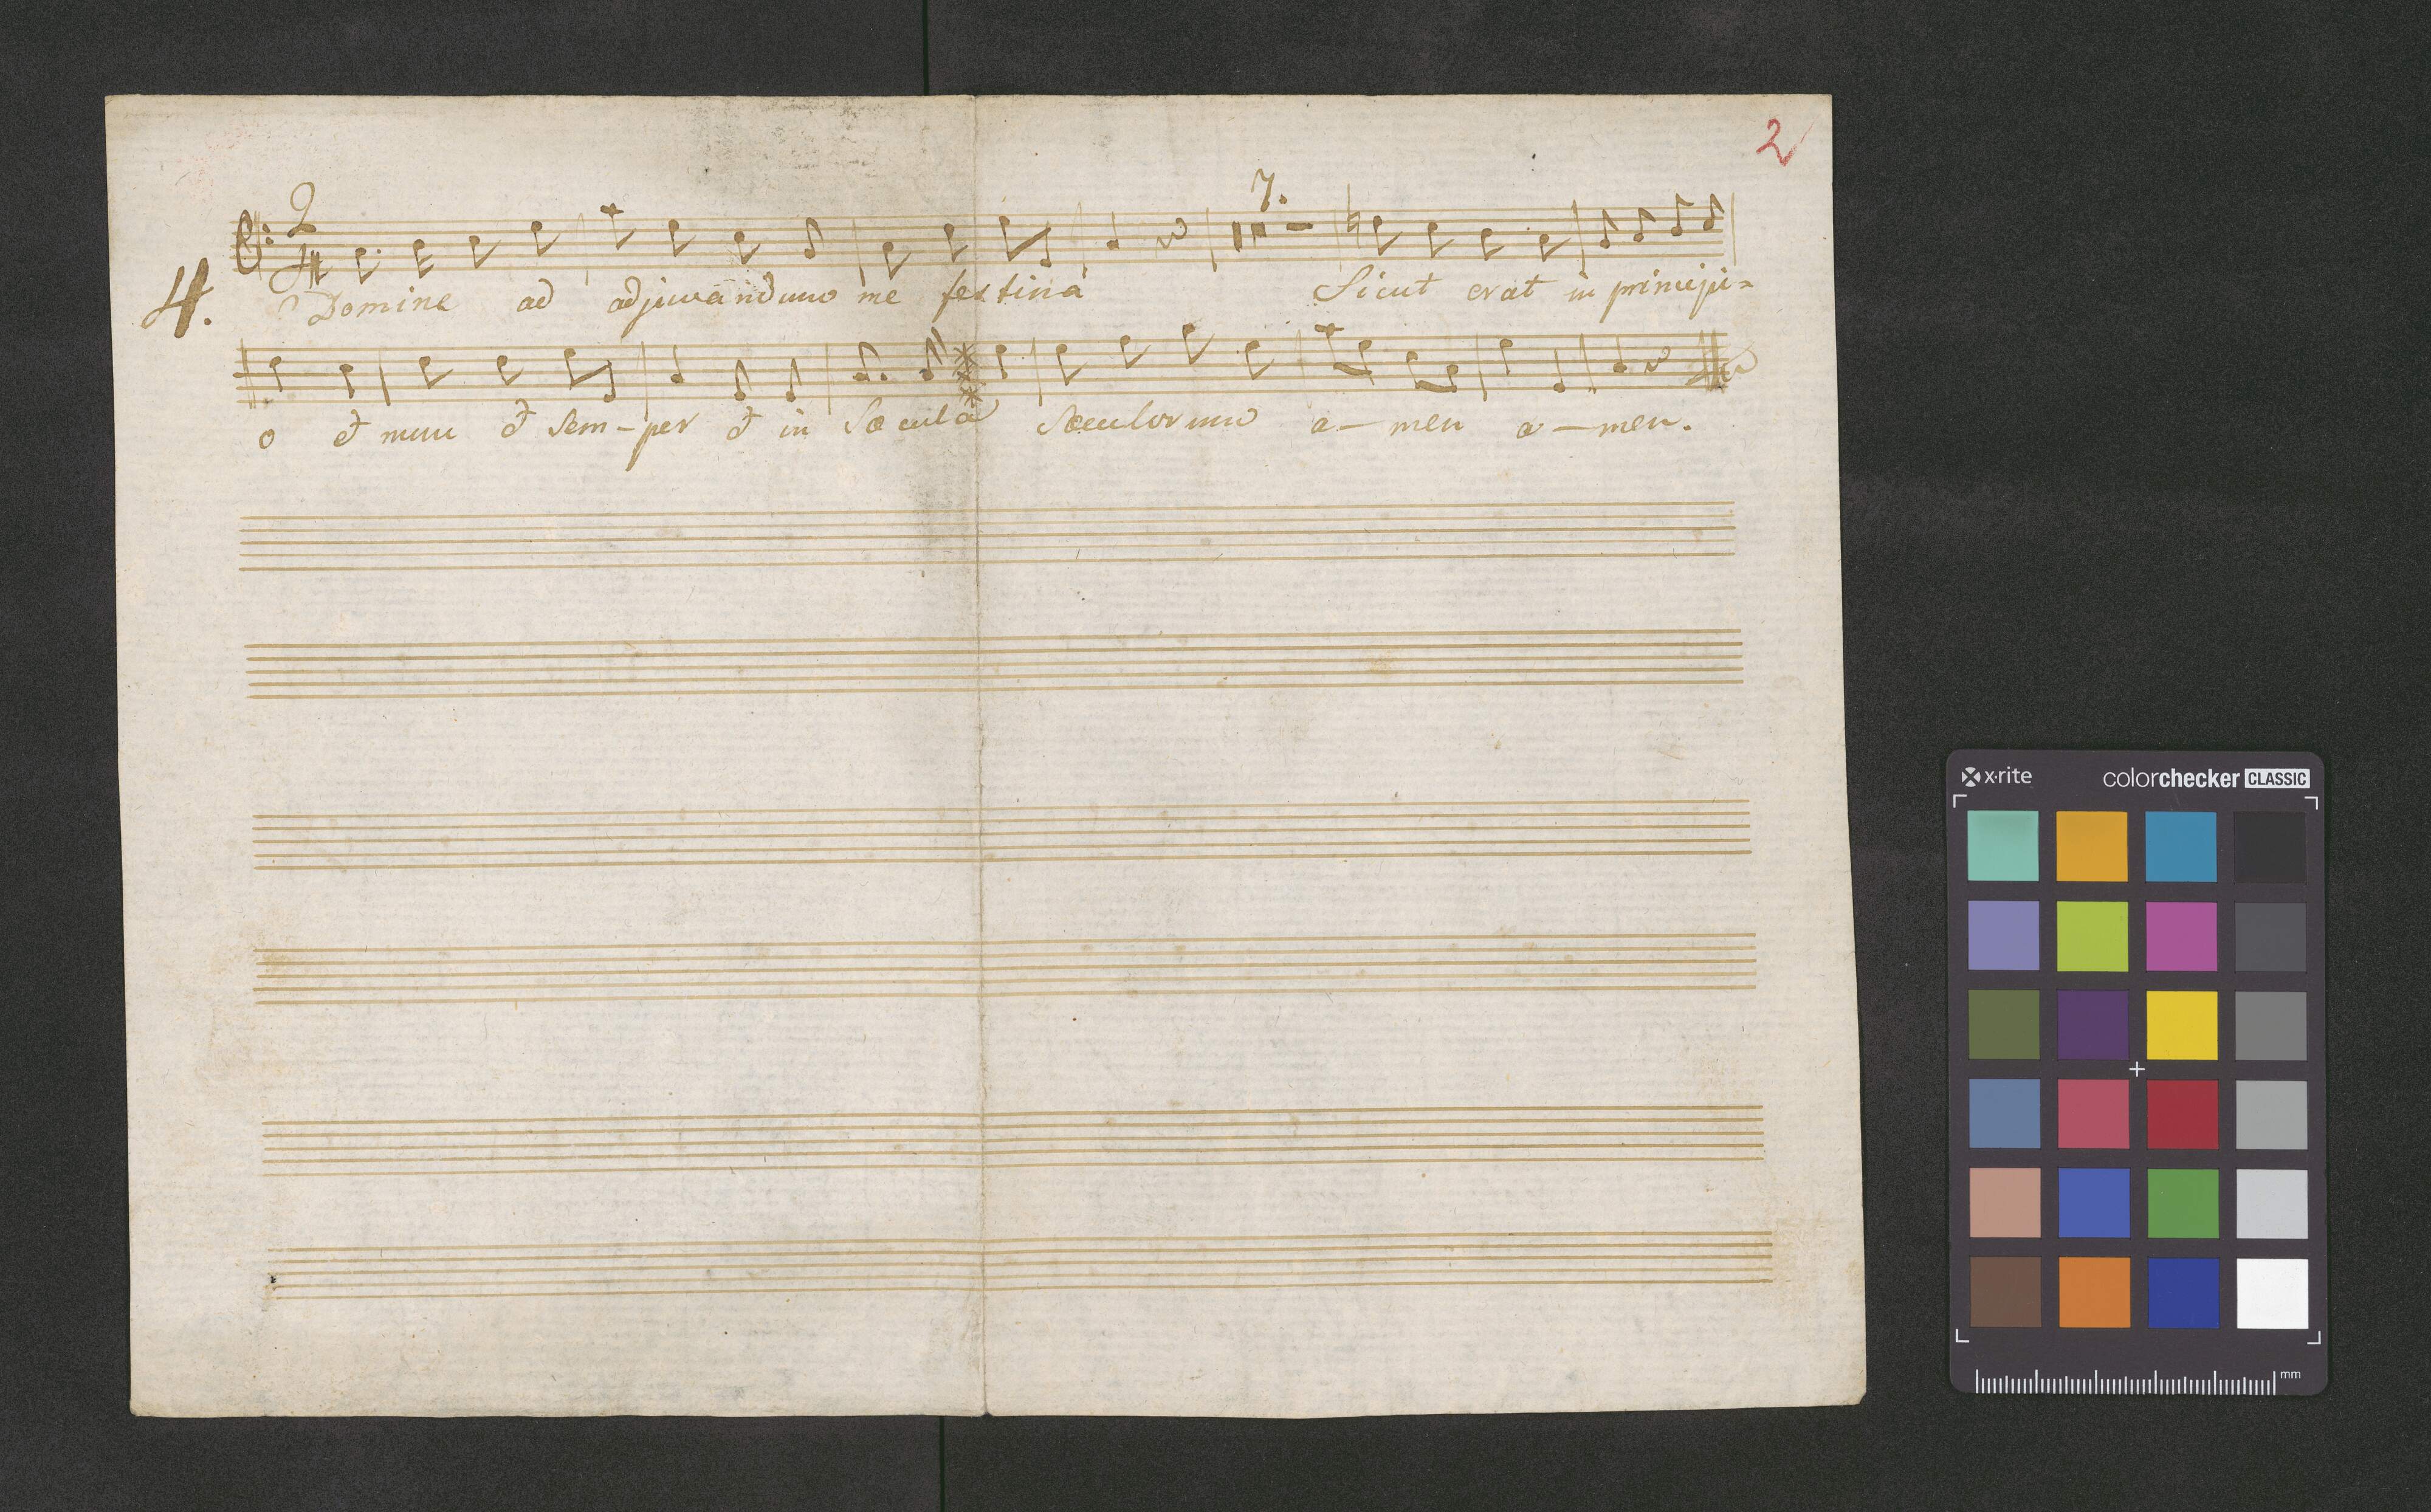 2
7.
4.
Domine ad adjuvandum me festina Sicut erat in principi=
o et nunc et sem-per et in Sæcula Sæculorum a-men a-men.
x·rite colorchecker CLASSIC
mm